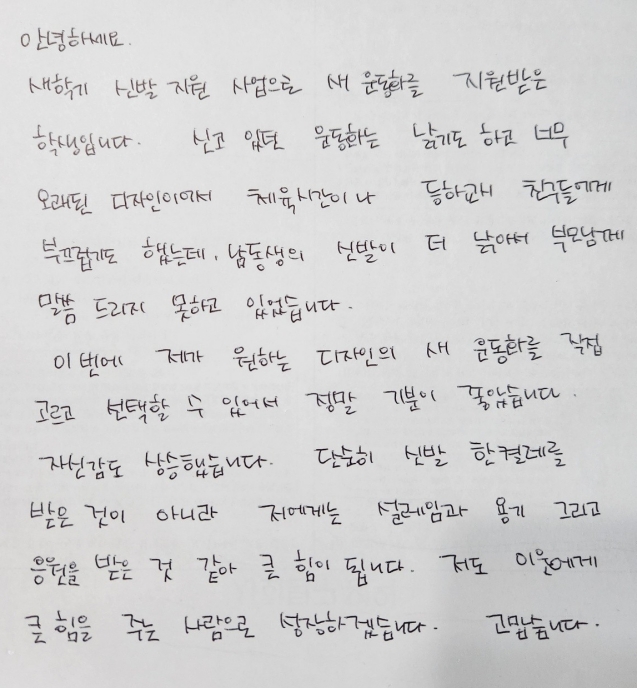 안녕하세요.
새학기 신발 지원 사업으로 새 운동화를 지원받은
학생입니다. 신고 있던 운동화는 낡기도 하고 너무
오래된 디자인이어서 체육시간이나 등하교시 친구들에게
부끄럽기도 했는데, 남동생의 신발이 더 낡아서 부모님께
말씀 드리지 못하고 있었습니다.
이번에 제가 원하는 디자인의 새 운동화를 직접
고르고 선택할 수 있어서 정말 기분이 좋았습니다.
자신감도 상승했습니다. 단순히 신발 한켤레를
받은 것이 아니라 저에게는 설레임과 용기 그리고
응원을 받은 것 같아 큰 힘이 됩니다. 저도 이웃에게
큰 힘을 주는 사람으로 성장하겠습니다. 고맙습니다.